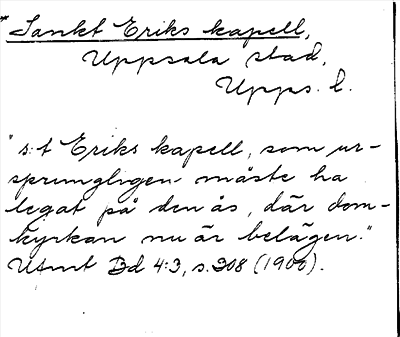 * Sankt Eriks kapell,
Uppsala stad,
Upps. l.
"s:t Eriks kapell, som ur-
sprungligen måste ha
legat på den ås, där dom-
kyrkan nu är belägen."
UFmt Bd 4:3, s. 308 (1900).